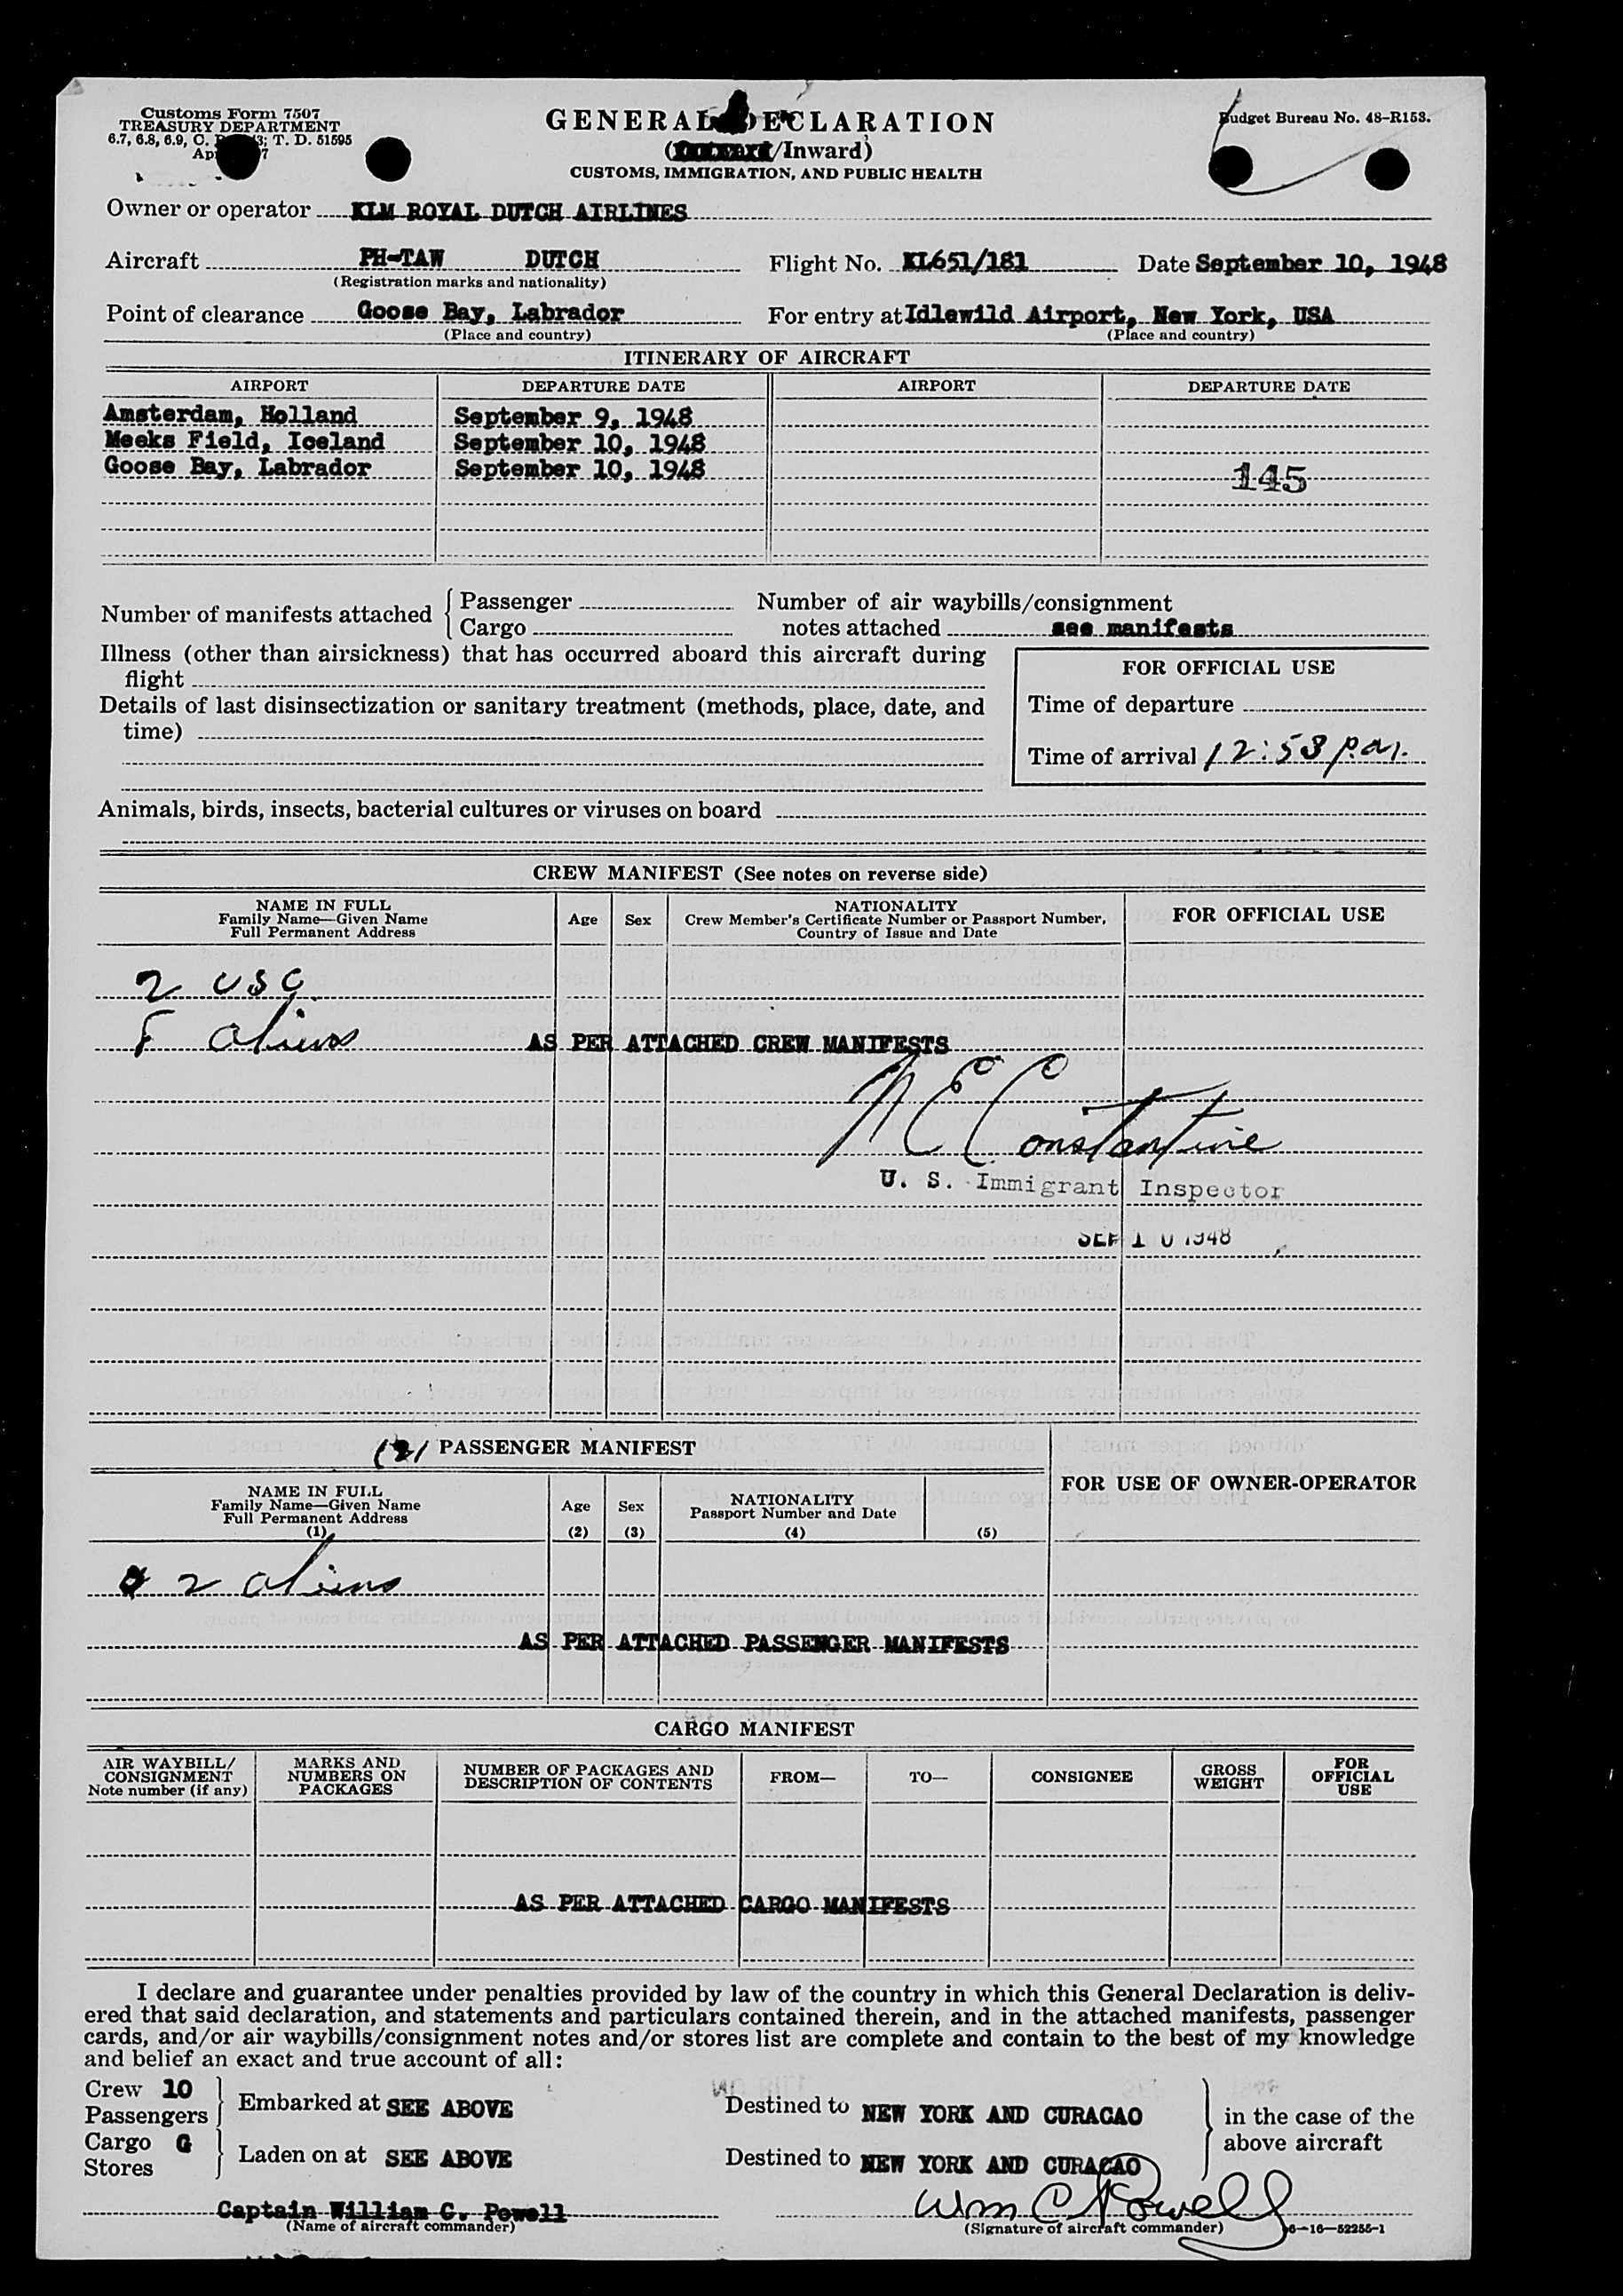 Customs Form 7507
TREASURY DEPARTMENT
6.7, 6.8, 6.9, C. 3; T. D. 51595
GENERAL DECLARATION
(/Inward)
CUSTOMS, IMMIGRATION, AND PUBLIC HEALTH
Budget Bureau No. 48-R153.
Owner or operator KLM ROYAL DUTCH AIRLINES
Aircraft PH-TAW DUTCH Flight No. KL651/181 Date September 10, 1948
(Registration marks and nationality)
Point of clearance Goose Bay, Labrador For entry at Idlewild Airport, New York, USA
(Place and country) (Place and country)
ITINERARY OF AIRCRAFT
AIRPORT DEPARTURE DATE AIRPORT DEPARTURE DATE
Amsterdam, Holland September 9, 1948
Meeks Field, Iceland September 10, 1948
Goose Bay, Labrador September 10, 1948 145
Number of manifests attached { Passenger
Cargo
Number of air waybills/consignment
notes attached see manifests
Illness (other than airsickness) that has occurred aboard this aircraft during
flight
Details of last disinsectization or sanitary treatment (methods, place, date, and
time)
FOR OFFICIAL USE
Time of departure
Time of arrival 12:53 p.m.
Animals, birds, insects, bacterial cultures or viruses on board
CREW MANIFEST (See notes on reverse side)
NAME IN FULL
Family Name—Given Name
Full Permanent Address
Age
Sex
NATIONALITY
Crew Member's Certificate Number or Passport Number,
Country of Issue and Date
FOR OFFICIAL USE
2 USC
8 aliens
AS PER ATTACHED CREW MANIFESTS
N E Constantine
U. S. Immigrant Inspector
SEP 10 1948
PASSENGER MANIFEST
FOR USE OF OWNER-OPERATOR
NAME IN FULL
Family Name—Given Name
Full Permanent Address
(1)
Age
(2)
Sex
(3)
NATIONALITY
Passport Number and Date
(4) (5)
2 aliens
AS PER ATTACHED PASSENGER MANIFESTS
CARGO MANIFEST
AIR WAYBILL/
CONSIGNMENT
Note number (if any)
MARKS AND
NUMBERS ON
PACKAGES
NUMBER OF PACKAGES AND
DESCRIPTION OF CONTENTS
FROM—
TO—
CONSIGNEE
GROSS
WEIGHT
FOR
OFFICIAL
USE
AS PER ATTACHED CARGO MANIFESTS
I declare and guarantee under penalties provided by law of the country in which this General Declaration is deliv-
ered that said declaration, and statements and particulars contained therein, and in the attached manifests, passenger
cards, and/or air waybills/consignment notes and/or stores list are complete and contain to the best of my knowledge
and belief an exact and true account of all:
Crew 10
Passengers
Embarked at SEE ABOVE Destined to NEW YORK AND CURACAO
Cargo G
Stores
Laden on at SEE ABOVE Destined to NEW YORK AND CURACAO
in the case of the
above aircraft
Captain William C. Powell Wm C Powell
(Name of aircraft commander) (Signature of aircraft commander) 16—52255-1